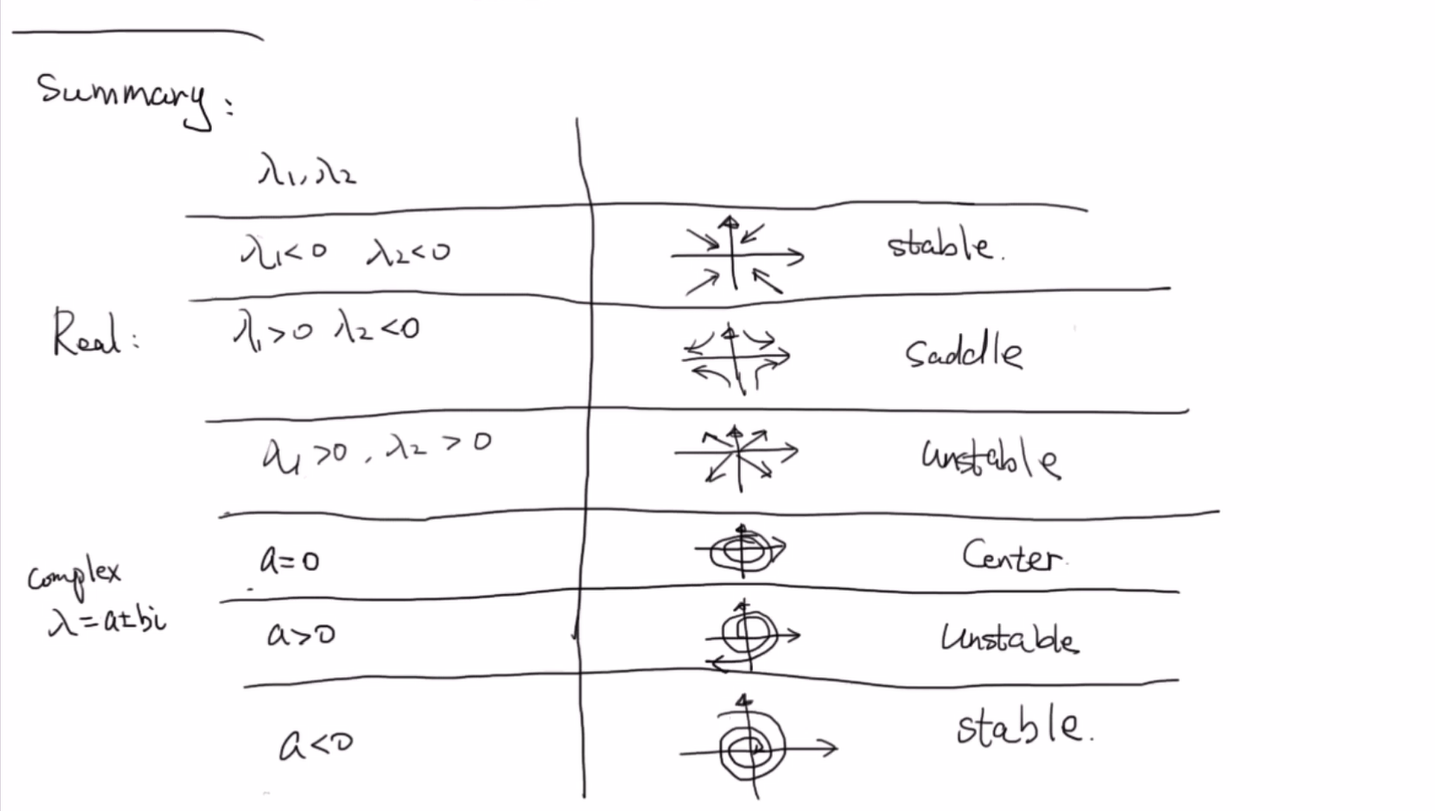 Summary:
λ₁, λ₂
λ₁<0 λ₂<0 stable.
Real: λ₁>0 λ₂<0 saddle
λ₁>0, λ₂>0 unstable
complex
λ=a±bi
a=0 Center.
a>0 Unstable
a<0 stable.